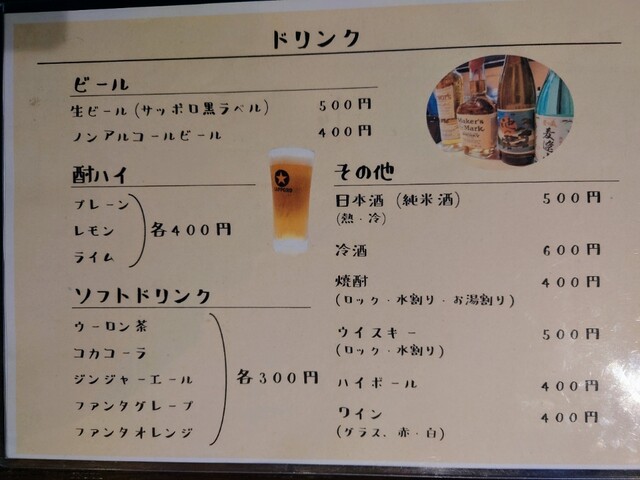 ドリンク
ビール
生ビール(サッポロ黒ラベル) 500円
ノンアルコールビール 400円
酎ハイ
プレーン
レモン
ライム
各400円
ソフトドリンク
ウーロン茶
コカコーラ
ジンジャーエール
ファンタグレープ
ファンタオレンジ
各300円
その他
日本酒(純米酒) 500円
(熱・冷)
冷酒 600円
焼酎 400円
(ロック・水割り・お湯割り)
ウイスキー 500円
(ロック・水割り)
ハイボール 400円
ワイン 400円
(グラス、赤・白)
Maker's
Mark